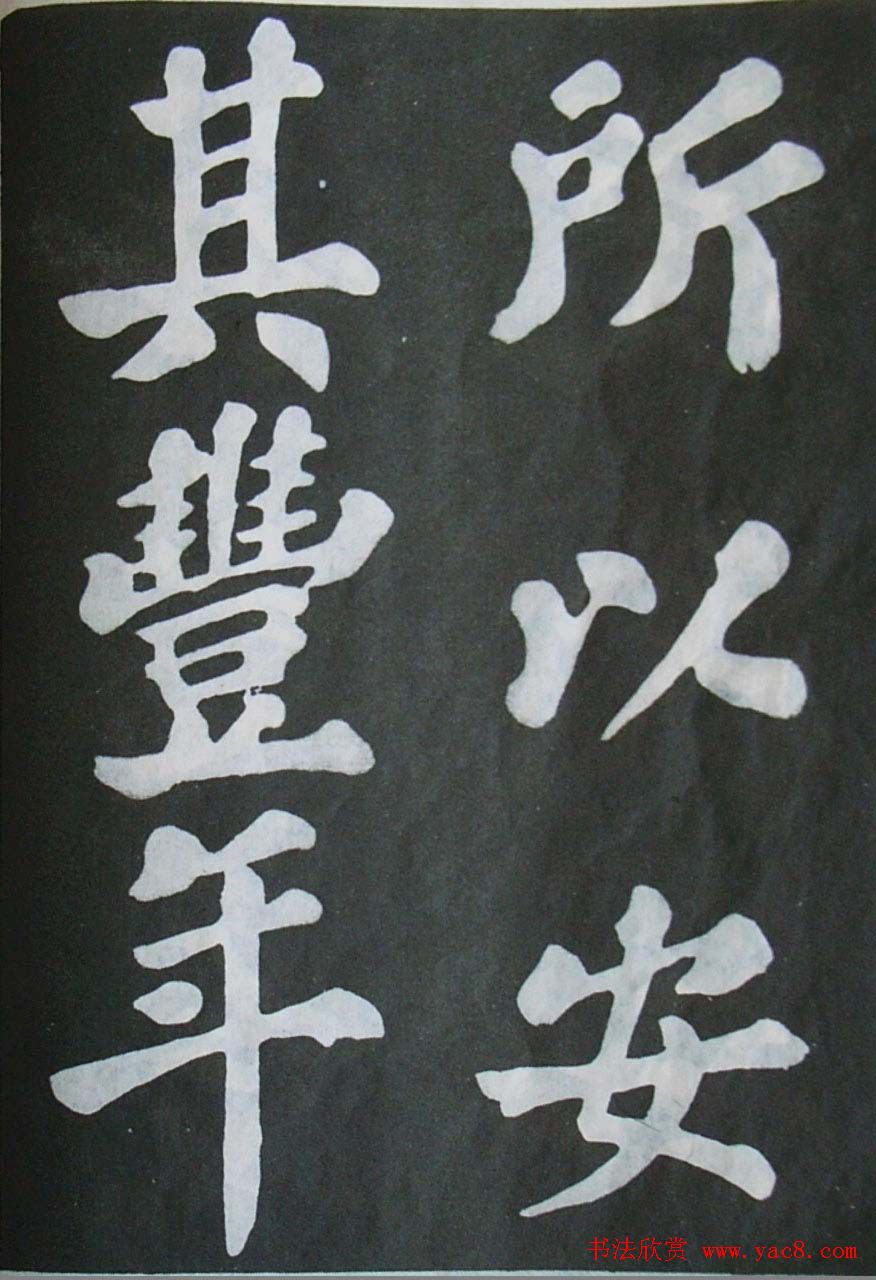 所以安
其豐年
书法欣赏 www.yac8.com